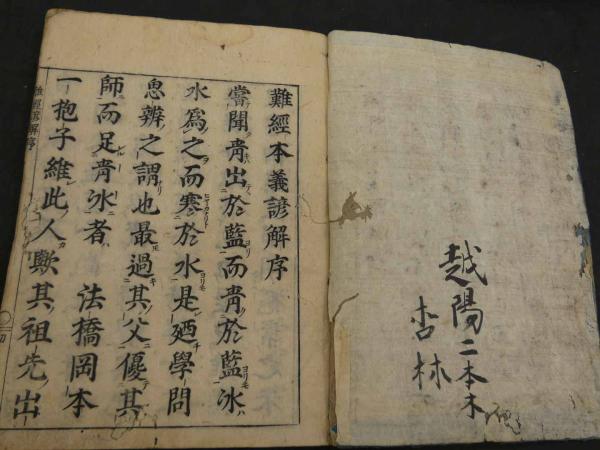 越陽二本木
杏林
難經本義諺解序
嘗聞青出於藍而青於藍冰
水爲之而寒於水是廼學問
思辨之謂也最過其父優其
師而足青冰者 法橋岡本
一抱子維此人歟其祖先出